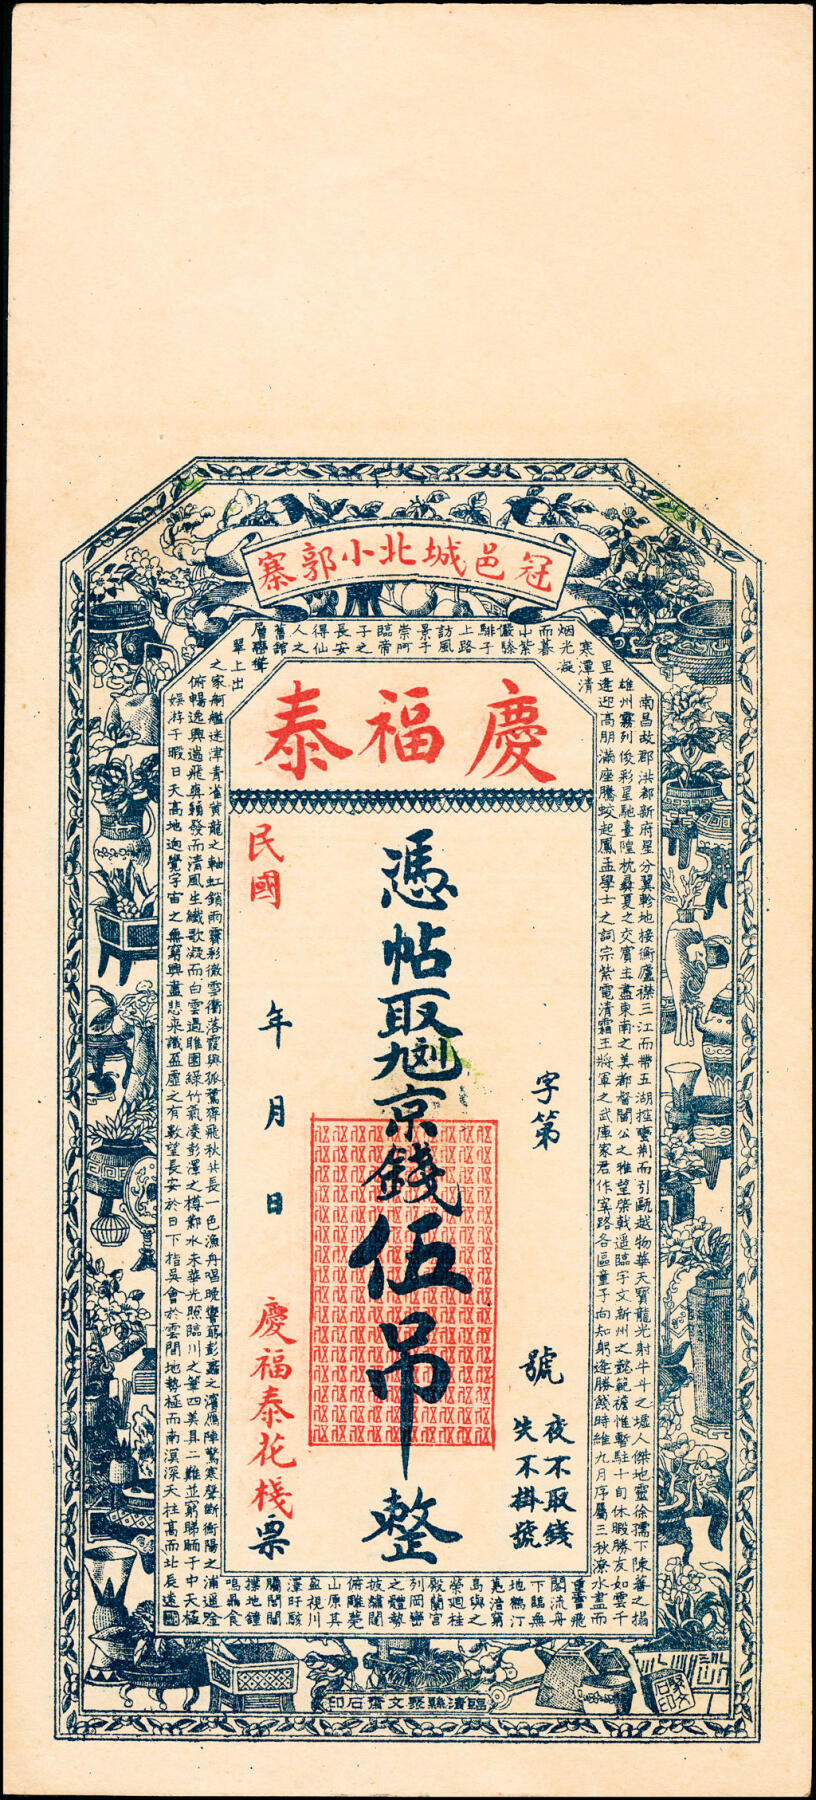 冠邑城北小郭寨
慶福泰
憑帖取京錢伍吊整
字第
號
夜不取錢
失不掛號
民國
年
月
日
慶福泰花棧票
南昌故郡洪都新府星分翼軫地接衡廬襟三江而帶五湖控蠻荊而引甌越物華天寶龍光射牛斗之墟人傑地靈徐孺下陳蕃之榻
雄州霧列俊彩星馳臺隍枕夷夏之交賓主盡東南之美都督閻公之雅望棨戟遥臨宇文新州之懿範襜帷暫駐十旬休暇勝友如雲千
里逢迎高朋滿座騰蛟起鳳孟學士之詞宗紫電清霜王將軍之武庫家君作宰路各區童子何知躬逢勝餞時維九月序屬三秋潦水盡而
寒潭清
烟光凝
而暮
山紫
儼驂
騑于
上路
訪風
景于
崇阿
臨帝
子之
長安
得仙
人之
舊館
層巒聳
翠上出
重霄飛
閣流丹
下臨無
地鶴汀
鳧渚窮
島嶼之
縈廻桂
殿蘭宮
列岡巒
之體勢
披繡闥
俯雕甍
山原其
盈視川
澤盱駭
矚閭閻
撲地鐘
鳴鼎食
之家舸艦迷津青雀黄龍之軸虹銷雨霽彩徹雲衢落霞與孤鶩齊飛秋共長一色漁舟唱晚響窮彭蠡之濱雁陣驚寒聲斷衡陽之浦遥吟
俯暢逸興遄飛爽籟發而清風生纖歌凝而白雲遏睢園綠竹氣凌彭澤之樽鄴水朱華光照臨川之筆四美具二難並窮睇眄于中天極
娛游于暇日天高地迥覺宇宙之無窮興盡悲來識盈虛之有數望長安於日下指吳會於雲間地勢極而南溟深天柱高而北辰遠
臨清縣聚文齋石印
聚文石印